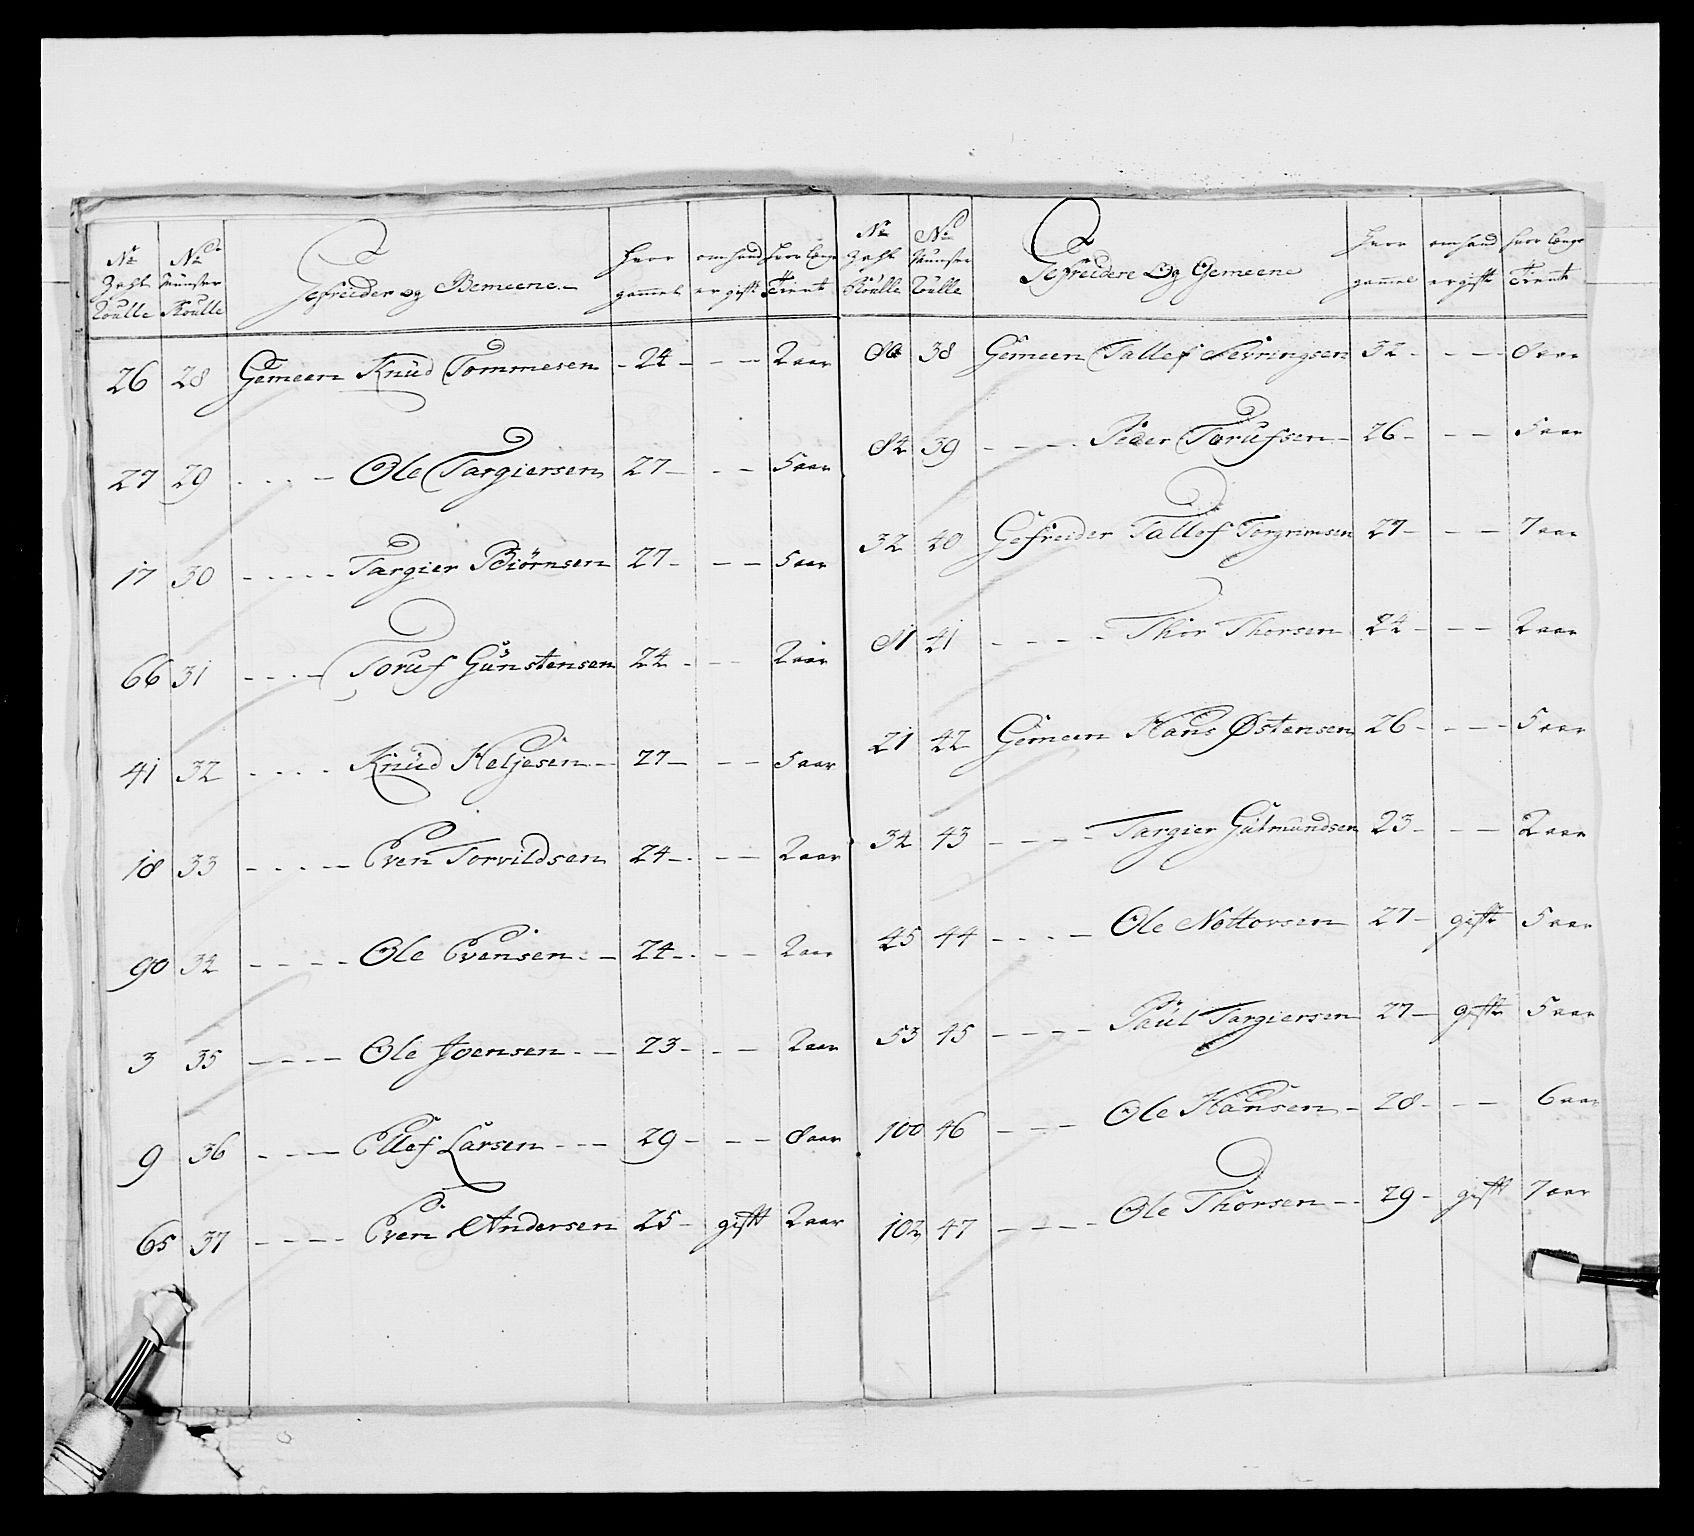 No Zahl Roulle | No Münster Roulle | Gefreider og Gemeene | hvor gammel | om hand er gifft | hvor længe Tient
26 28 Gemeen Knüd Tommesen - 24 - - - 2 aar
27 29 - - - - Ole Targiersen 27 - - - 5 aar
17 30 - - - - - Targier Biörnsen 27 - - - 5 aar
66 31 - - - - Toruf Gunstensen 24 - - - 2 aar
41 32 - - - - Knüd Heljesen - - 27 - - - 5 aar
18 33 - - - - - Even Torvildsen 24 - - - 2 aar
90 34 - - - - - Ole Evensen - - 24 - - - 2 aar
3 35 - - - - Ole Joensen - - 23 - - - 2 aar
9 36 - - - - Ellef Larsen - - - 29 - - - 8 aar
65 37 - - - - Even Andersen 25 - gifft 2 aar
No Zahl Roulle | No Munster Roulle | Gefreidere Og Gemeene | hvor gammel | om hand er gifft | hvor længe Tient
38 Gemeen Tallef Sevringsen 32 - - - 8 aar
84 39 - - - - Peder Torufsen - 26 - - - 5 aar
32 40 Gefreider Tallef Torgrimsen 27 - - - 7 aar
81 41 - - - - - Thor Thorsen 24 - - - 2 aar
21 42 Gemeen Hans Østensen 26 - - - 5 aar
34 43 - - - - Targier Gutmundsen 23 - - - 2 aar
45 44 - - - - - Ole Nottovsen 27 - gifft 5 aar
53 45 - - - - Paul Targiersen 27 - gifft 5 aar
100 46 - - - - Ole Hansen - 28 - - - 6 aar
102 47 - - - - Ole Thorsen - - 29 - gifft 7 aar